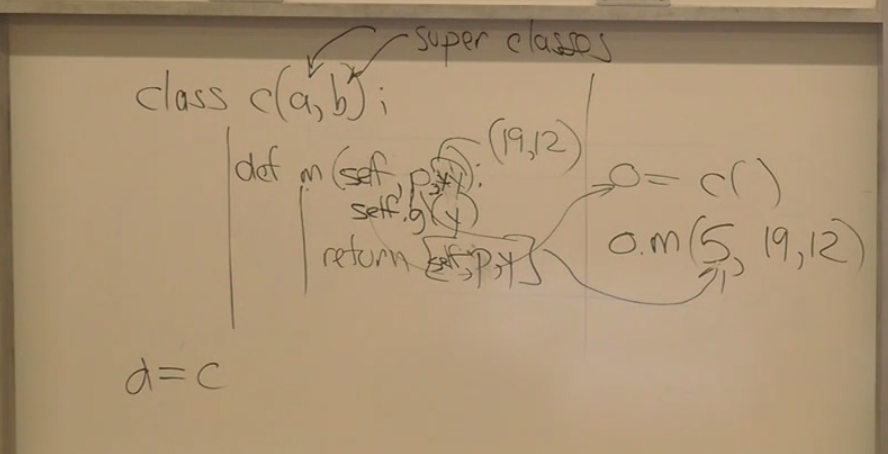 super classes
class c(a,b):
(19,12)
def m(self, p, *y):
self.g(y)
return [self,p,y]
d=c
o= c()
o.m(5, 19,12)